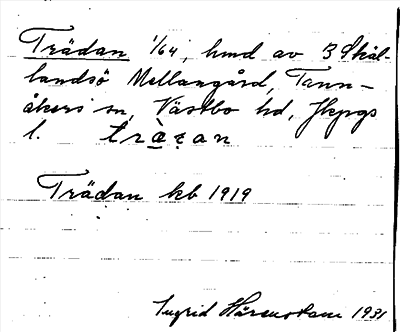 Trädan 1/64, hmd av 3 Skål-
landsö Mellangård, Tann-
åkers sn, Västbo hd, Jkpgs
l. trạ̈ẓan
Trädan kb 1919
Ingrid Härenstam 1931